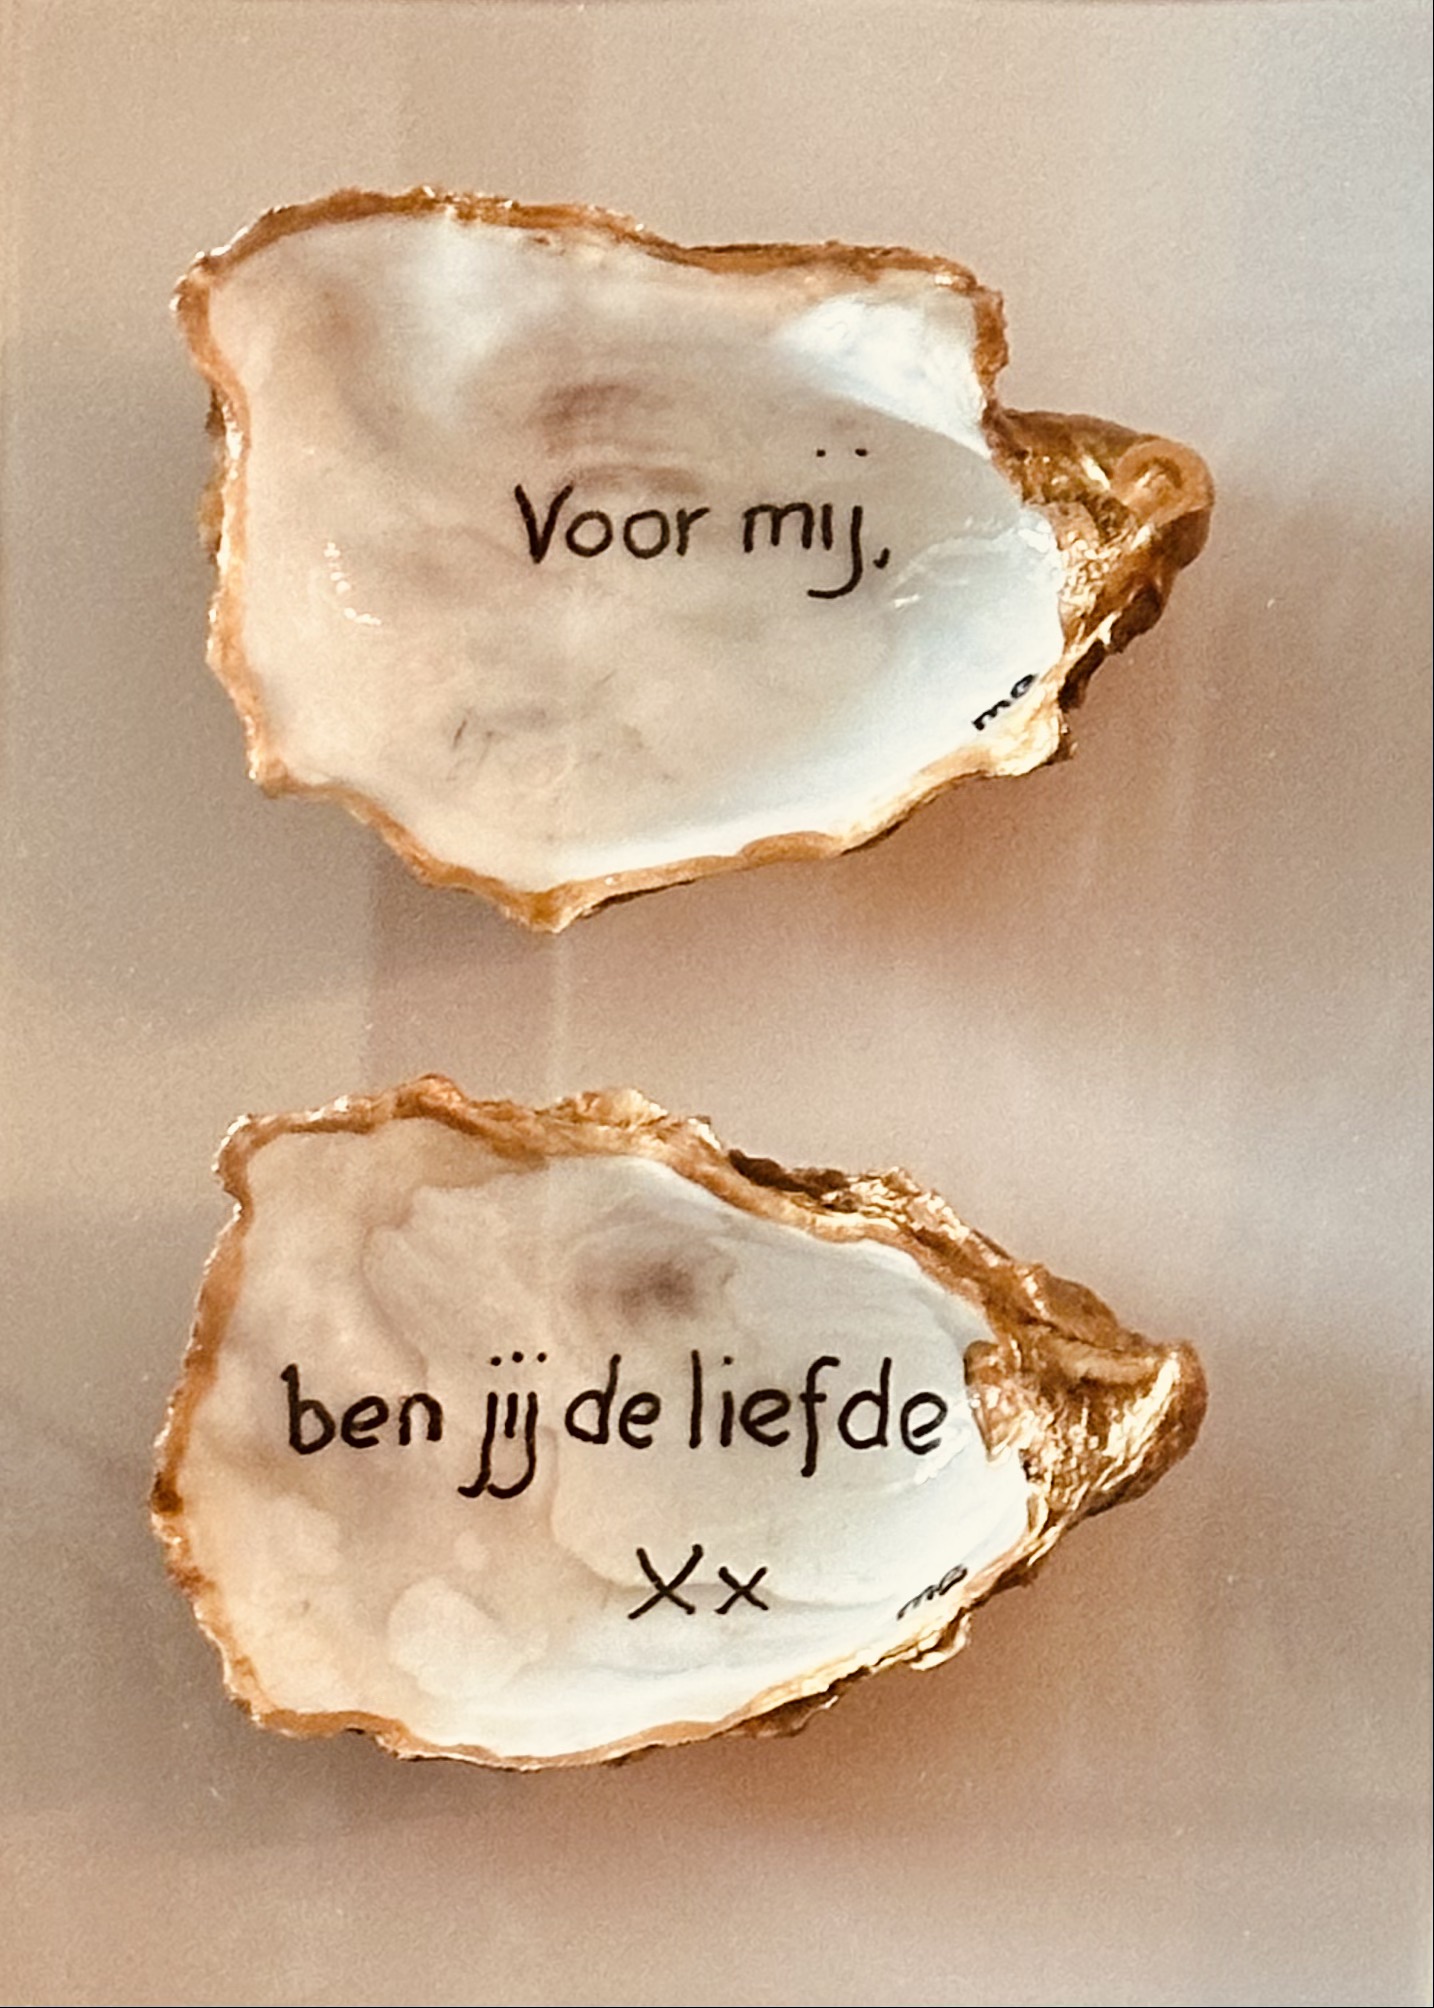 Voor mij,
ben jij de liefde
Xx